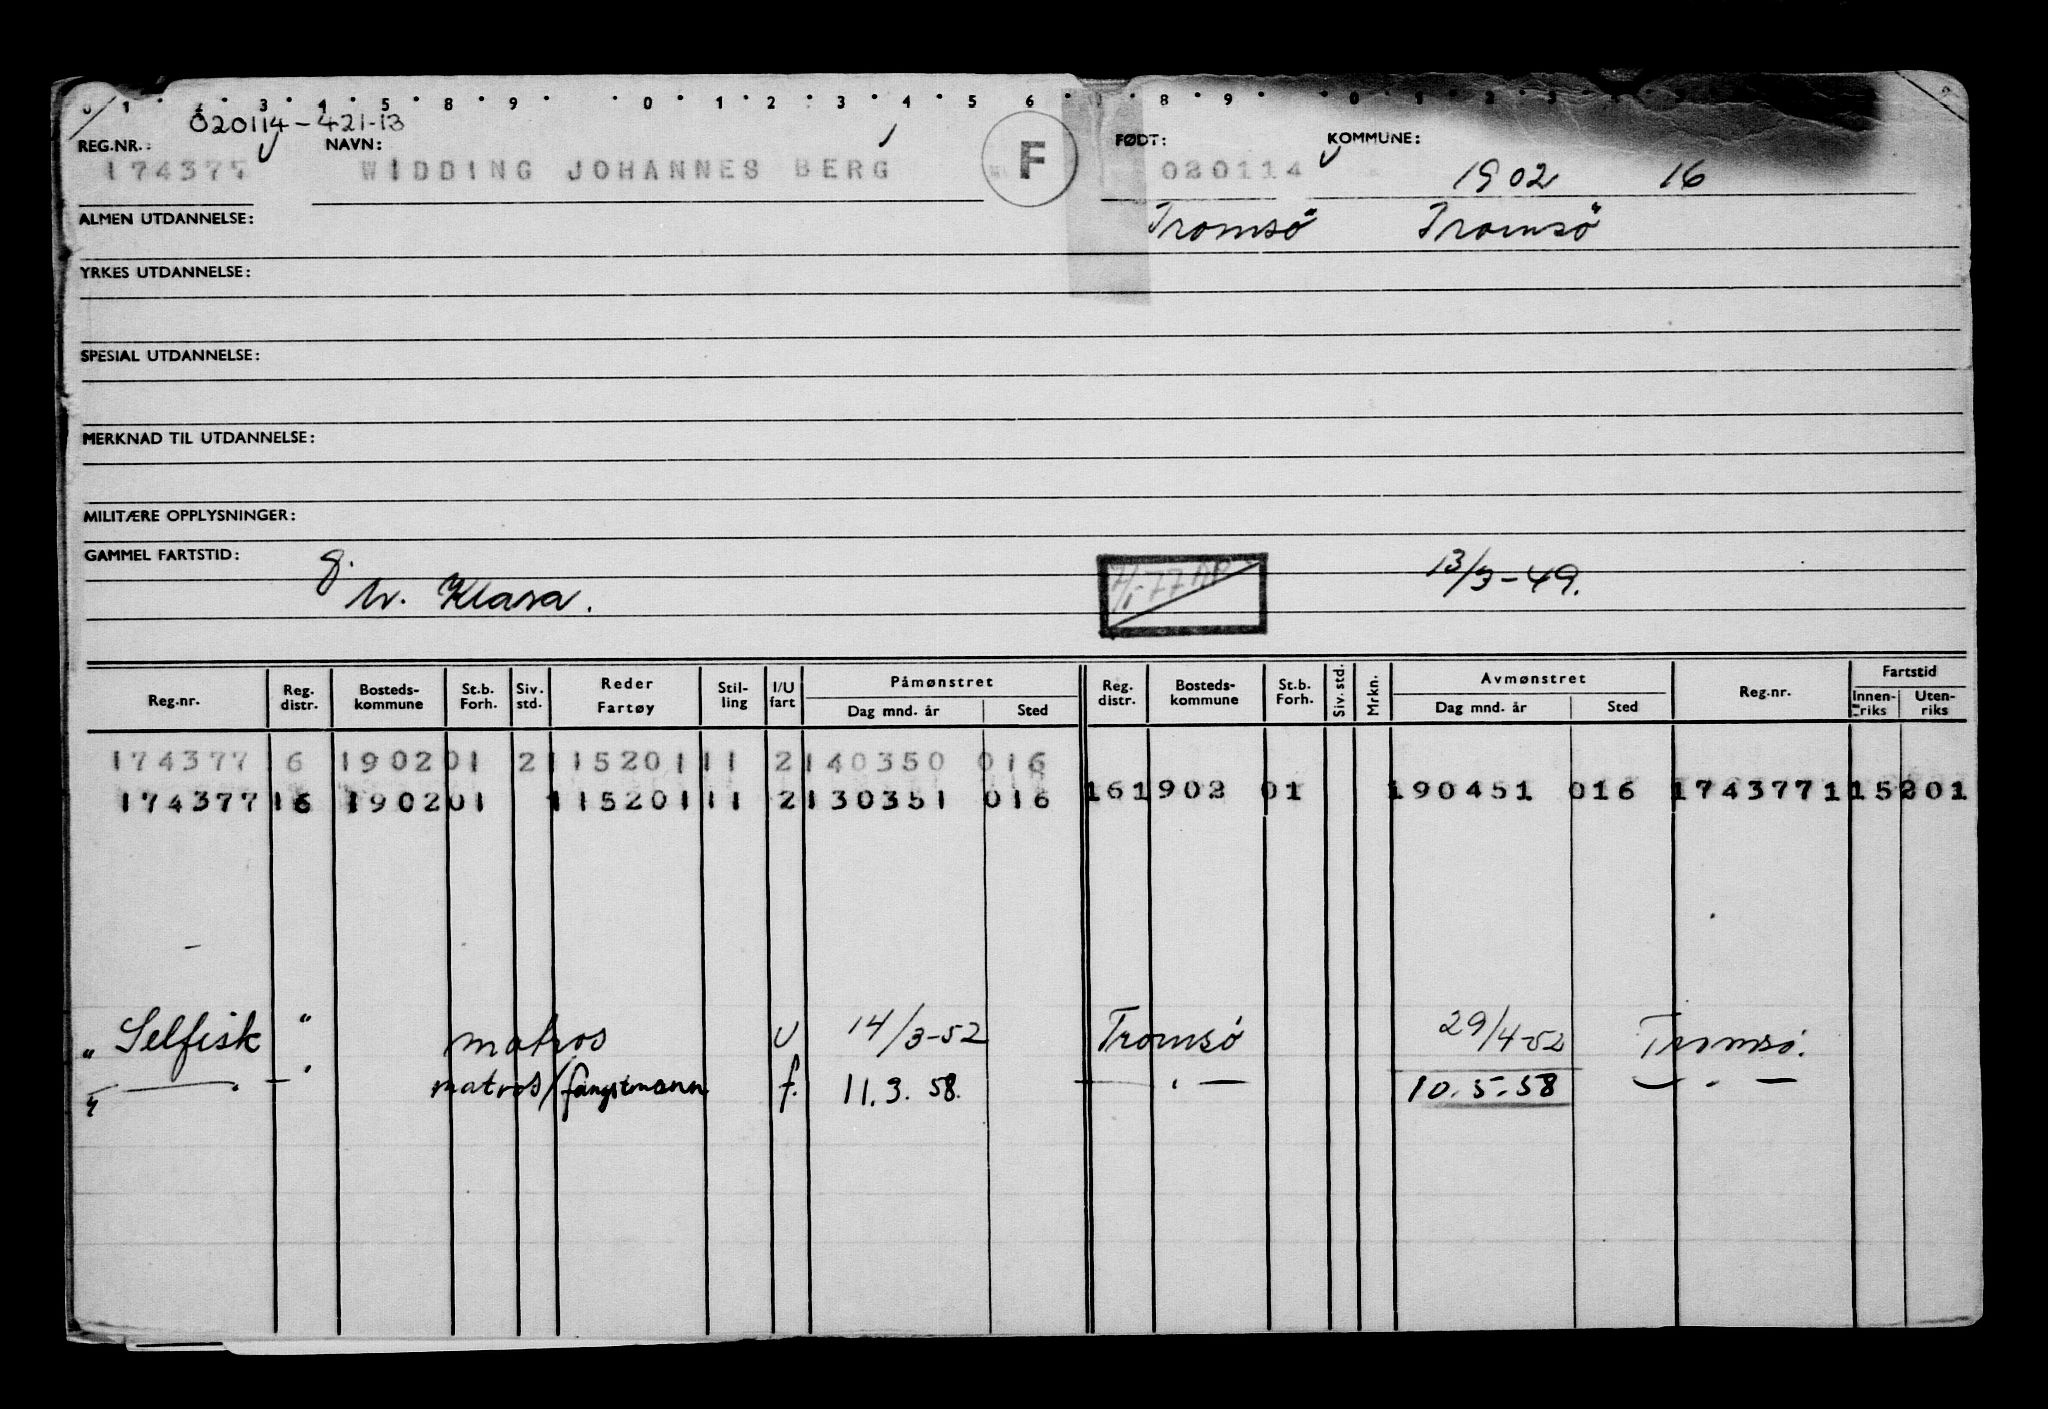 0 1 2 3 4 5 8 9 0 1 2 3 4 5 6 8 9 0 1 2 3
020114-421-13
REG.NR.: NAVN: FØDT: KOMMUNE:
174377 WIDDING JOHANNES BERG F 020114 1902 16
ALMEN UTDANNELSE: Tromsö Tromsö
YRKES UTDANNELSE:
SPESIAL UTDANNELSE:
MERKNAD TIL UTDANNELSE:
MILITÆRE OPPLYSNINGER:
GAMMEL FARTSTID: g. 13/3-49.
M. Klara.
Reg.nr. Reg. distr. Bosteds-kommune St.b. Forh. Siv. std. Reder Fartøy Stil-ling I/U fart Påmønstret Dag mnd. år Sted Reg. distr. Bosteds-kommune St.b. Forh. Siv. std. Mrkn. Avmønstret Dag mnd. år Sted Reg.nr. Fartstid Innen-riks Uten-riks
174377 6 1902 01 2 115201 11 2 140350 016
174377 16 1902 01 115201 11 2 130351 016 16 1902 01 190451 016 174377 115201
" Selfisk " matros U 14/3-52 Tromsö 29/4-52 Tromsö.
" — " — matros/fangstmann f. 11.3.58. — " — 10.5.58 — " —